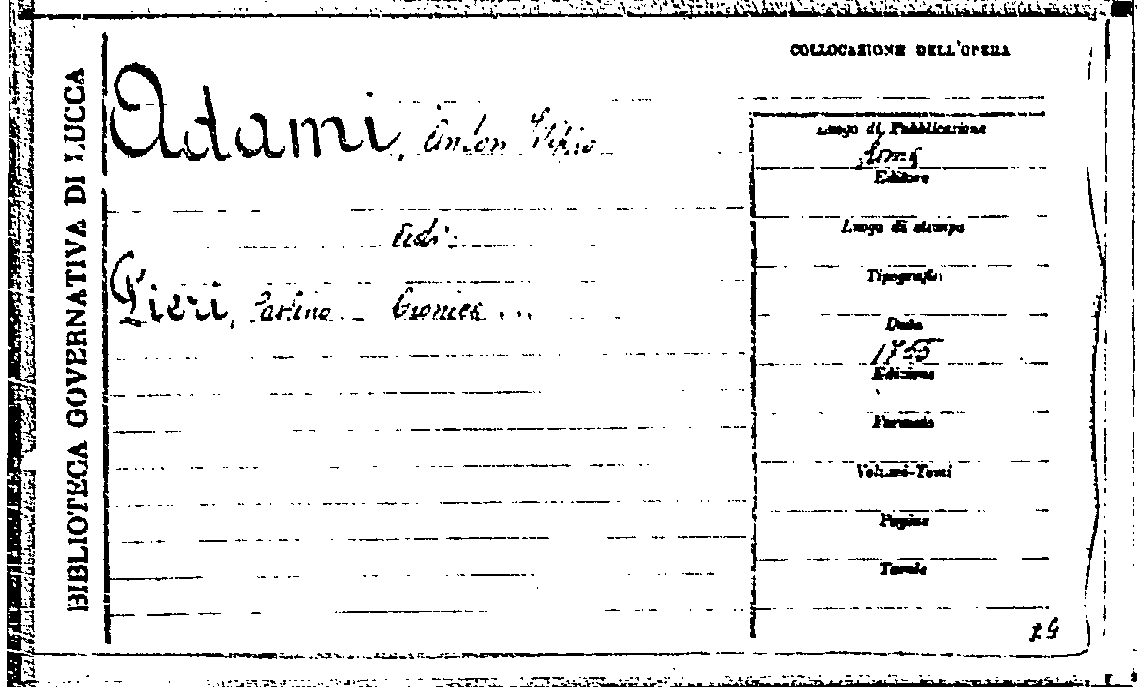 BIBLIOTECA GOVERNATIVA DI LUCCA
Adami, Anton Filippo
Vedi:
Pieri, Paolino Cronica ...
COLLOCAZIONE DELL'OPERA
Luogo di Pubblicazione
Roma
Editore
Luogo di stampa
Tipografia
Data
1755
Edizione
Formato
Volumi-Tomi
Pagine
Tavole